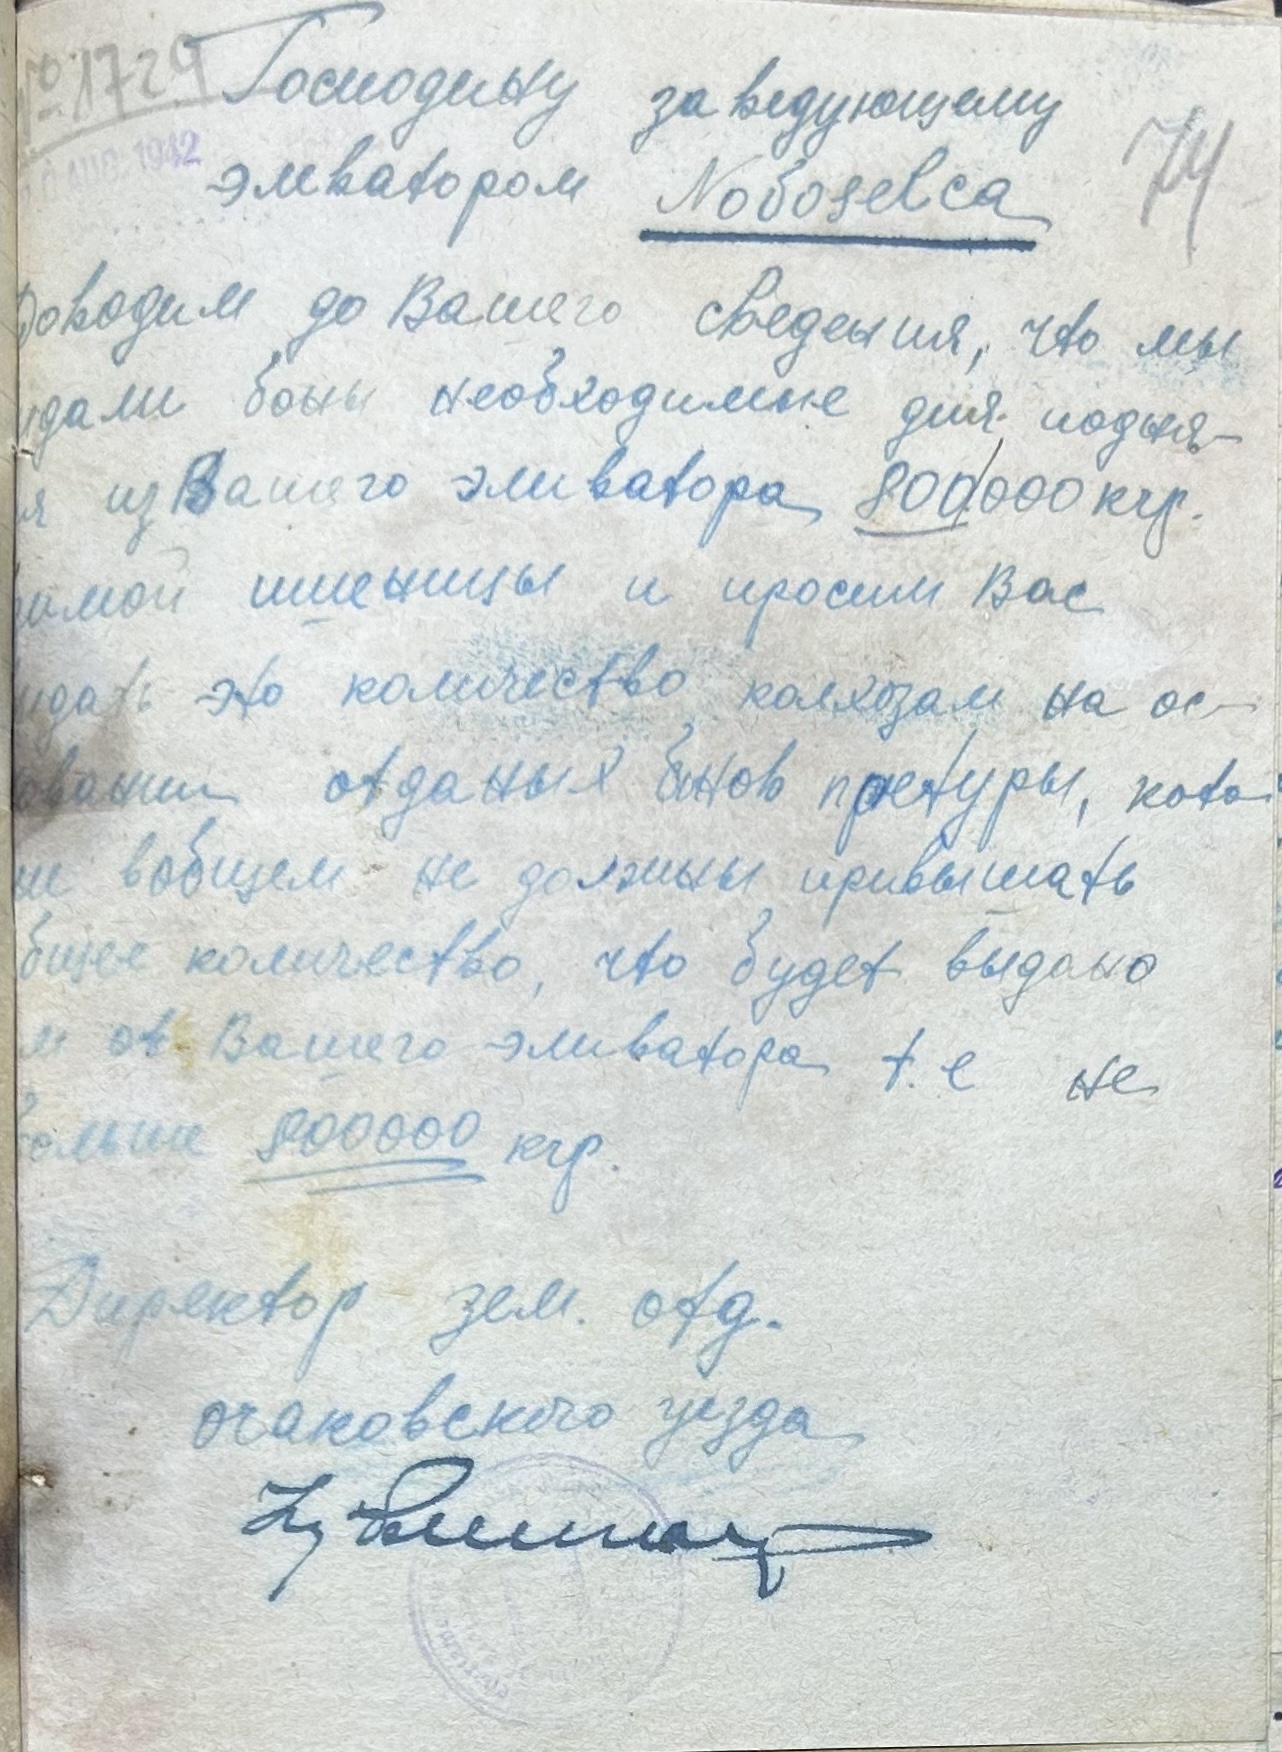 №1729
AUG. 1942
74
Господину заведующему
эливатором Novoselca
Доводим до Вашего сведения, что мы
дали боны необходимые для подня-
я из Вашего эливатора 800000 кгр.
имой пшеницы и просим Вас
дать это количество колхозам на ос-
овании отданых бонов претуры, кото-
ые вобщем не должны привышать
бщее количество, что будет выдано
м от Вашего эливатора т.е не
больше 800000 кгр.
Директор зем. отд.
очаковского уезда